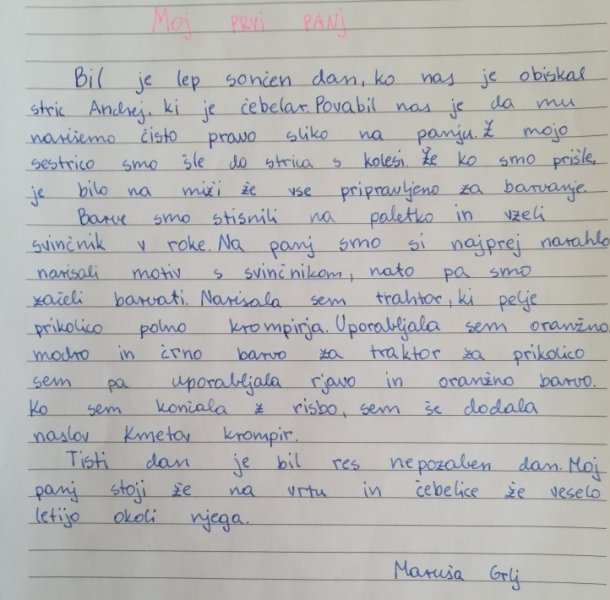 Moj prvi panj
Bil je lep sončen dan, ko nas je obiskal
stric Andrej, ki je čebelar. Povabil nas je da mu
narišemo čisto pravo sliko na panju. Z mojo
sestrico smo šle do strica s kolesi. Že ko smo prišle,
je bilo na mizi že vse pripravljeno za barvanje.
Barve smo stisnili na paletko in vzeli
svinčnik v roke. Na panj smo si najprej narahlo
narisali motiv s svinčnikom, nato pa smo
začeli barvati. Narisala sem traktor, ki pelje
prikolico polno krompirja. Uporabljala sem oranžno,
modro in črno barvo za traktor za prikolico
sem pa uporabljala rjavo in oranžno barvo.
Ko sem končala z risbo, sem še dodala
naslov Kmetov krompir.
Tisti dan je bil res nepozaben dan. Moj
panj stoji že na vrtu in čebelice že veselo
letijo okoli njega.
Maruša Grlj